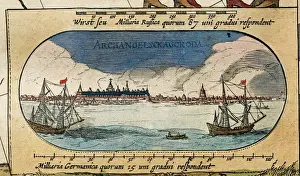 Wirst seu Milliaria Rustica quorum 87 uni gradui respondent
ARCHANGELSCKAGORODA
Milliaria Germanica quorum 15 uni gradui respondent